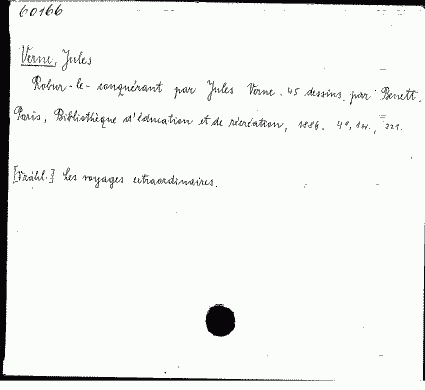 60166
Verne, Jules
Robur-le-conquérant par Jules Verne. 45 dessins par Benett.
Paris, Bibliothèque d'éducation et de récréation, 1886. 4°, 221.
Les voyages extraordinaires.